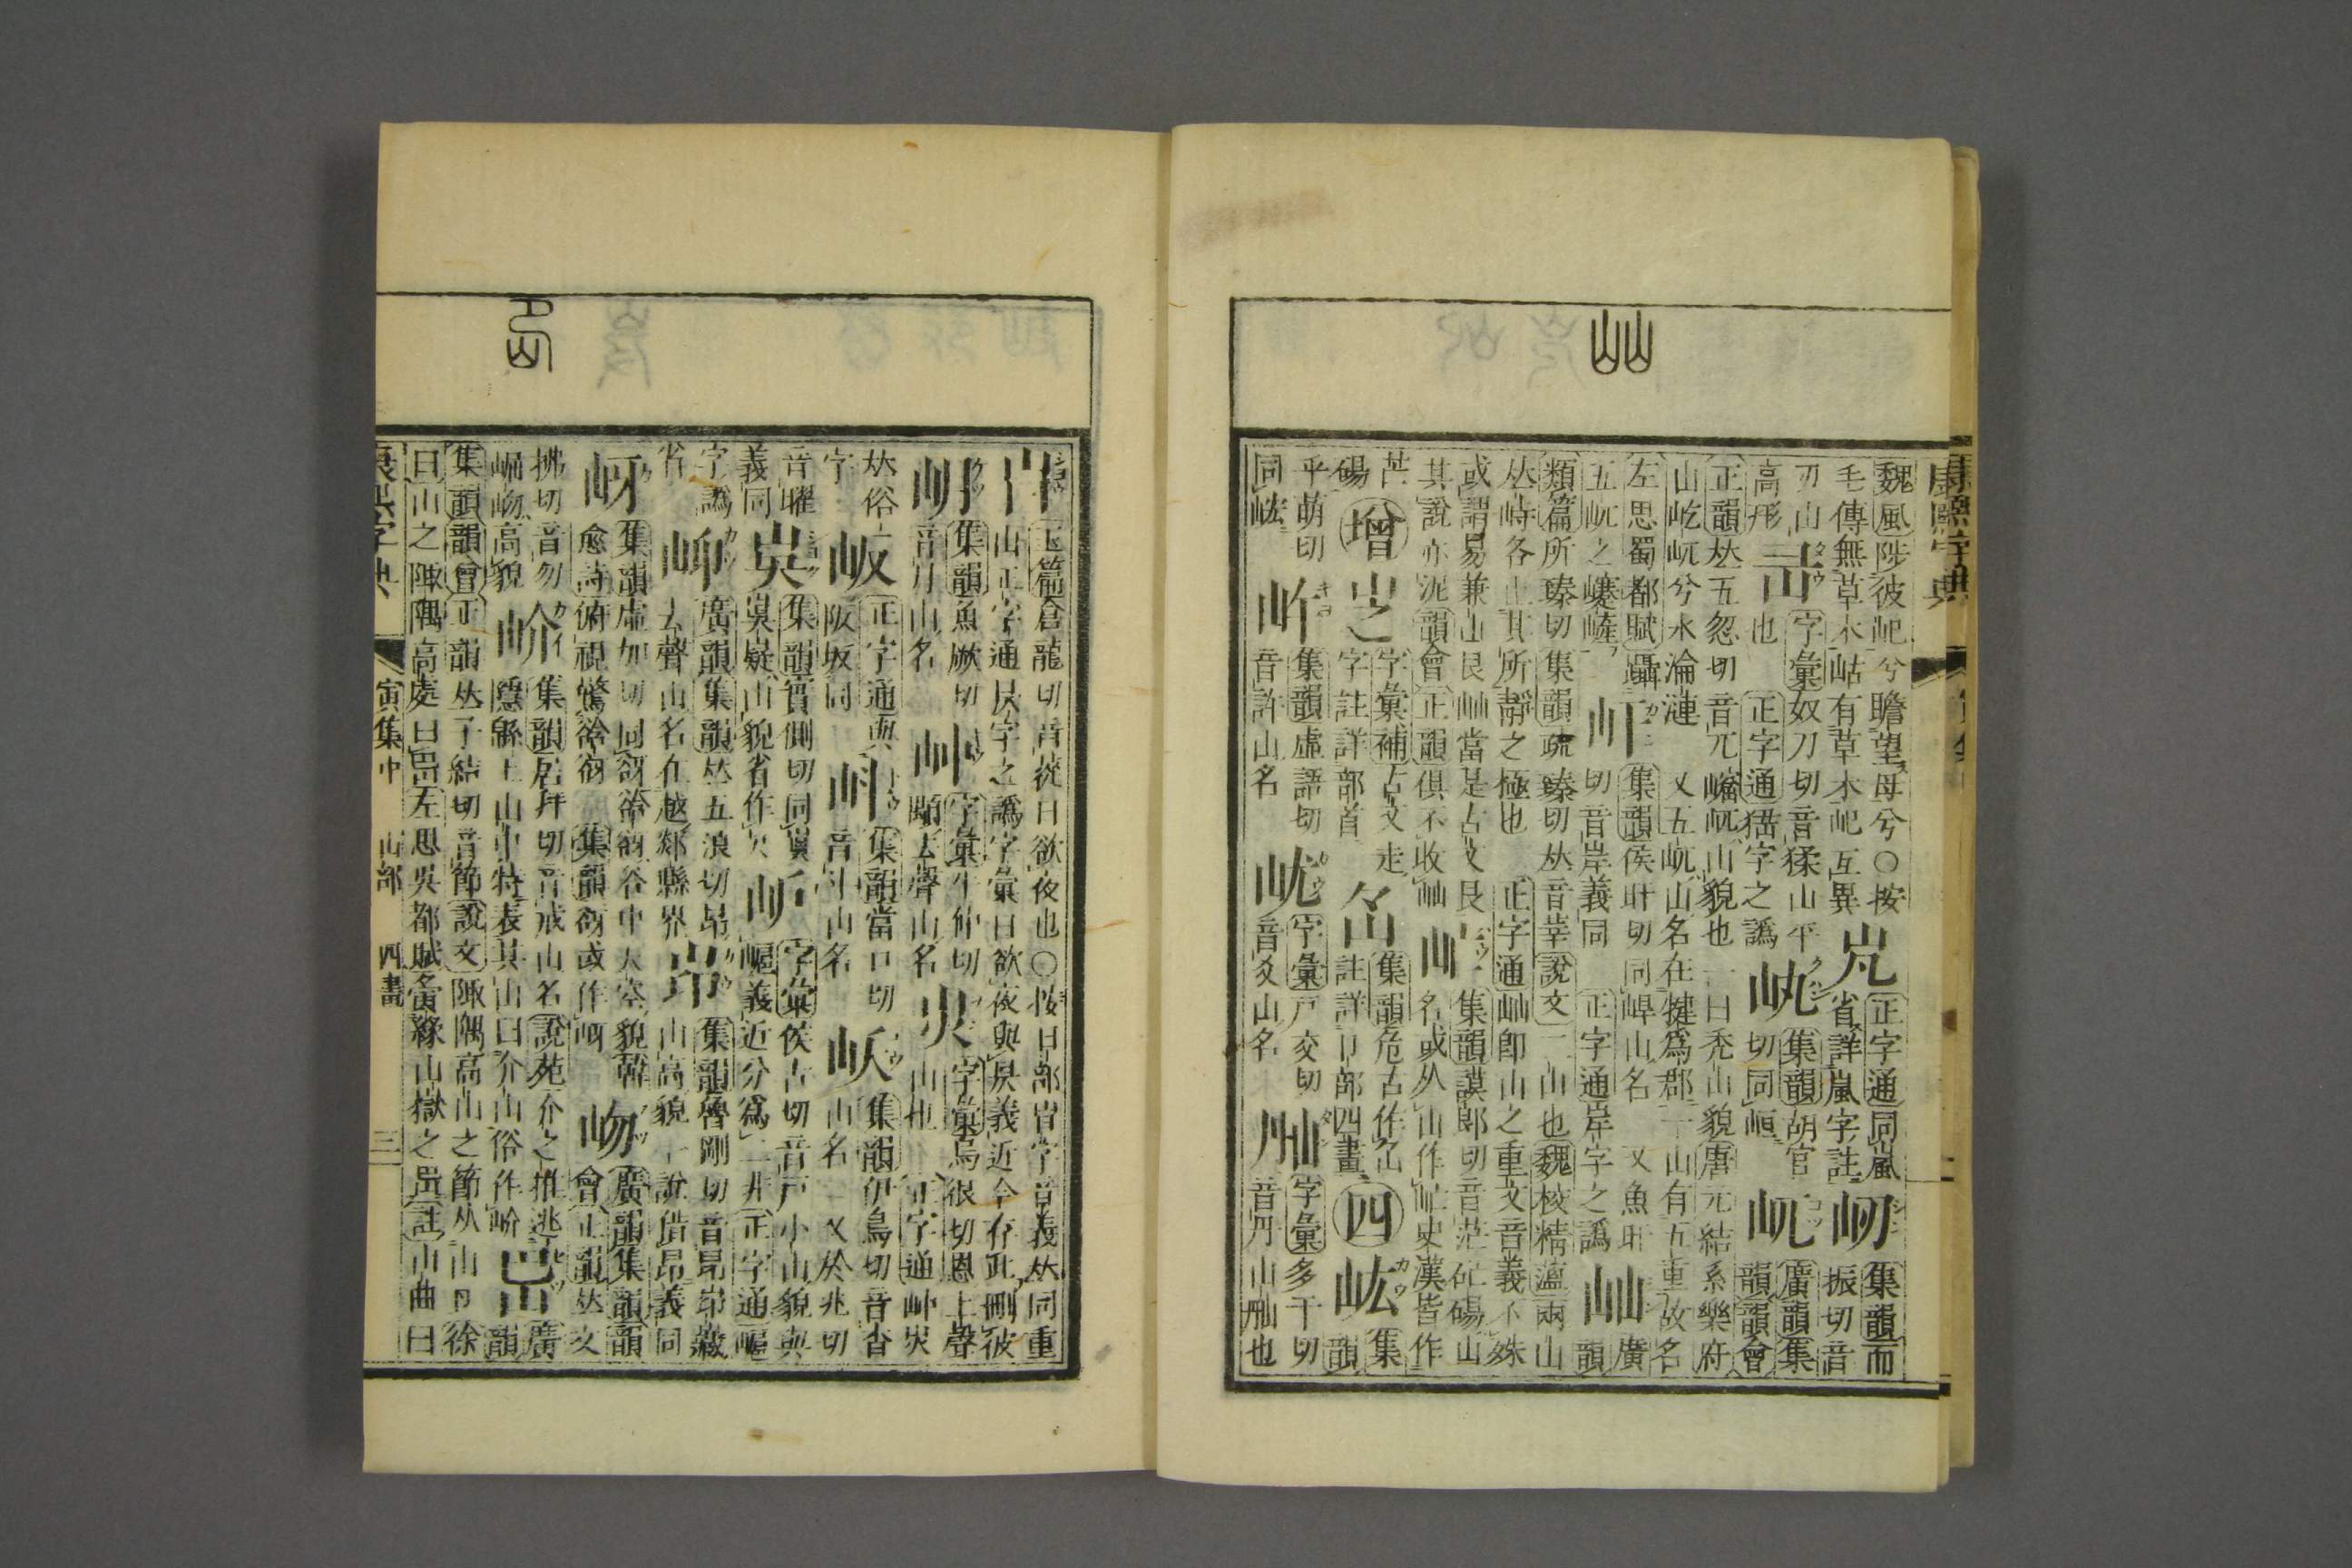 康熙字典
魏風陟彼屺兮瞻望母兮○按
毛傳無草木岵有草木屺互異
屶
正字通同嵐
省詳嵐字註
屻
集韻而
振切音
刃山
高形
字彙奴刀切音猱山平
也
正字通猺字之譌
集韻胡官
切同峘
屼
廣韻集
韻韻會
正韻𠀤五忽切音兀嶱屼山貌也一曰禿山貌唐元結系樂府
山屹屼兮水淪漣 又五屼山名在犍爲郡一山有五重故名
左思蜀都賦躡
五屼之蹇嵼
屽
集韻侯旰切同㟁山名 又魚旰
切音岸義同 正字通岸字之譌
屾
廣
韻
類篇所臻切集韻疏臻切𠀤音莘說文二山也魏校精蘊兩山
𠀤峙各止其所靜之極也 正字通屾卽山之重文音義不殊
或謂易兼山艮屾當是古文艮
其說亦泥韻會正韻俱不收屾
集韻謨郎切音茫砿碭山
名或从山作𡵀史漢皆作
芒
碭
增
岦
字彙補古文走
字註詳部首
屵
集韻危古作㕒
註詳卩部四畫
四
岤
集
韻
平萌切
同峵
岞
集韻虛語切
音許山名
𡵉
字彙戸交切
音爻山名
𡵙
字彙多干切
音丹山𡵙也
玉篇倉龍切音從日欲夜也○按日部𣅔字音義𠀤同重
山正字通昃字之譌字彙日欲夜與昃義近今存此刪彼
岄
集韻魚厥切
音月山名
𡶀
字彙牛仲切
顒去聲山名
字彙烏很切恩上聲
山也 正字通岉岦
𠀤俗
字
岅
正字通與
阪坂同
㞳
集韻當口切
音斗山名
岆
集韻伊鳥切音杳
山名 又於兆切
音曜
義同
㞦
集韻實側切同㠔
㠔嶷山貌省作㞦
岵
字彙侯古切音戸小山貌與
嶇義近分爲二非正字通嶇
字譌
省
岇
廣韻集韻𠀤五浪切昂
去聲山名在越郯縣界
㟅
集韻魯剛切音昂岇藏
山高貌一說借昂義同
岈
集韻虛加切同谺谽谺谷中大空貌韓
愈詩俯視驚谽谺 集韻谺或作岈
岉
廣韻集韻韻
會正韻𠀤文
拂切音勿
崛岉高貌
岕
集韻居拜切音戒山名說苑介之推逃
隱緜上山中特表其山曰介山俗作岕
岊
廣
韻
集韻韻會正韻𠀤子結切音節說文陬隅高山之節从山卪徐
曰山之陬隅高處曰岊左思吳都賦夤緣山嶽之岊註山曲曰
康熙字典
寅集中 山部 四畫
三